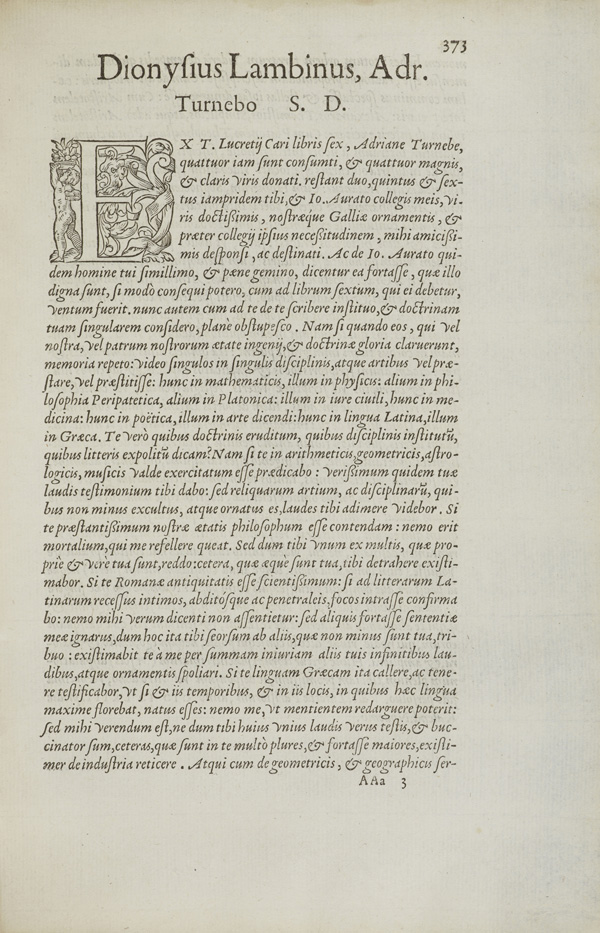 373
Dionyſius Lambinus, Adr.
Turnebo S. D.
EX T. Lucretij Cari libris ſex, Adriane Turnebe,
quattuor iam ſunt conſumti, & quattuor magnis,
& claris viris donati. reſtant duo, quintus & ſex-
tus iampridem tibi, & Io. Aurato collegis meis, vi-
ris doctißimis, noſtræque Galliæ ornamentis, &
præter collegij ipſius neceßitudinem, mihi amicißi-
mis deſponſi, ac deſtinati. Ac de Io. Aurato qui-
dem homine tui ſimillimo, & pæne gemino, dicentur ea fortaſſe, quæ illo
digna ſunt, ſi modò conſequi potero, cum ad librum ſextum, qui ei debetur,
ventum fuerit. nunc autem cum ad te de te ſcribere inſtituo, & doctrinam
tuam ſingularem conſidero, planè obſtupeſco. Nam ſi quando eos, qui vel
noſtra, vel patrum noſtrorum ætate ingenij, & doctrinæ gloria claruerunt,
memoria repeto: video ſingulos in ſingulis diſciplinis, atque artibus vel præ-
ſtare, vel præſtitiſſe: hunc in mathematicis, illum in phyſicis: alium in phi-
loſophia Peripatetica, alium in Platonica: illum in iure ciuili, hunc in me-
dicina: hunc in poëtica, illum in arte dicendi: hunc in lingua Latina, illum
in Græca. Te verò quibus doctrinis eruditum, quibus diſciplinis inſtitutũ,
quibus litteris expolitũ dicam? Nam ſi te in arithmeticis, geometricis, aſtro-
logicis, muſicis valde exercitatum eſſe prædicabo: verißimum quidem tuæ
laudis teſtimonium tibi dabo: ſed reliquarum artium, ac diſciplinarũ, qui-
bus non minus excultus, atque ornatus es, laudes tibi adimere videbor. Si
te præſtantißimum noſtræ ætatis philoſophum eſſe contendam: nemo erit
mortalium, qui me refellere queat. Sed dum tibi vnum ex multis, quæ pro-
priè & verè tua ſunt, reddo: cetera, quæ æquè ſunt tua, tibi detrahere exiſti-
mabor. Si te Romanæ antiquitatis eſſe ſcientißimum: ſi ad litterarum La-
tinarum receſſus intimos, abditoſque ac penetraleis, focos intraſſe confirma
bo: nemo mihi verum dicenti non aſſentietur: ſed aliquis fortaſſe ſententiæ
meæ ignarus, dum hoc ita tibi ſeorſum ab aliis, quæ non minus ſunt tua, tri-
buo: exiſtimabit te à me per ſummam iniuriam aliis tuis infinitibus lau-
dibus, atque ornamentis ſpoliari. Si te linguam Græcam ita callere, ac tene-
re teſtificabor, vt ſi & iis temporibus, & in iis locis, in quibus hæc lingua
maxime florebat, natus eſſes: nemo me, vt mentientem redarguere poterit:
ſed mihi verendum eſt, ne dum tibi huius vnius laudis verus teſtis, & buc-
cinator ſum, ceteras, quæ ſunt in te multò plures, & fortaſſe maiores, exiſti-
mer de induſtria reticere. Atqui cum de geometricis, & geographicis ſer-
AAa 3